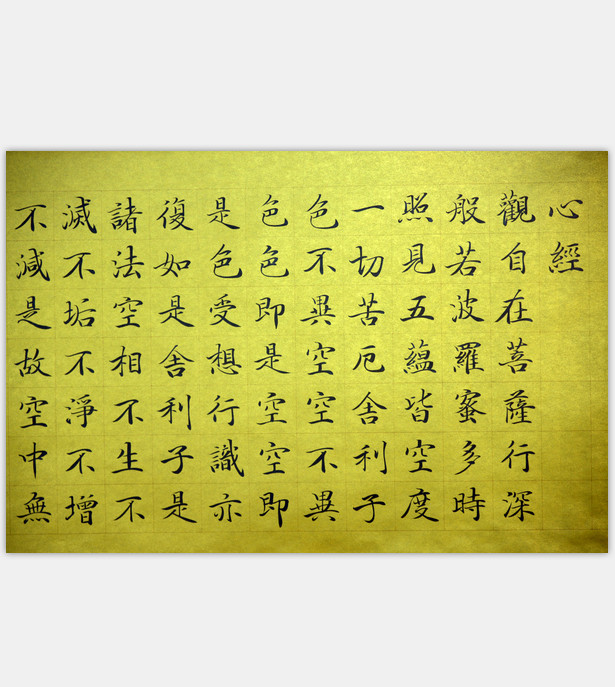 心經
觀自在菩薩行深
般若波羅蜜多時
照見五蘊皆空度
一切苦厄舍利子
色不異空空不異
色色即是空空即
是色受想行識亦
復如是舍利子是
諸法空相不生不
滅不垢不淨不增
不減是故空中無